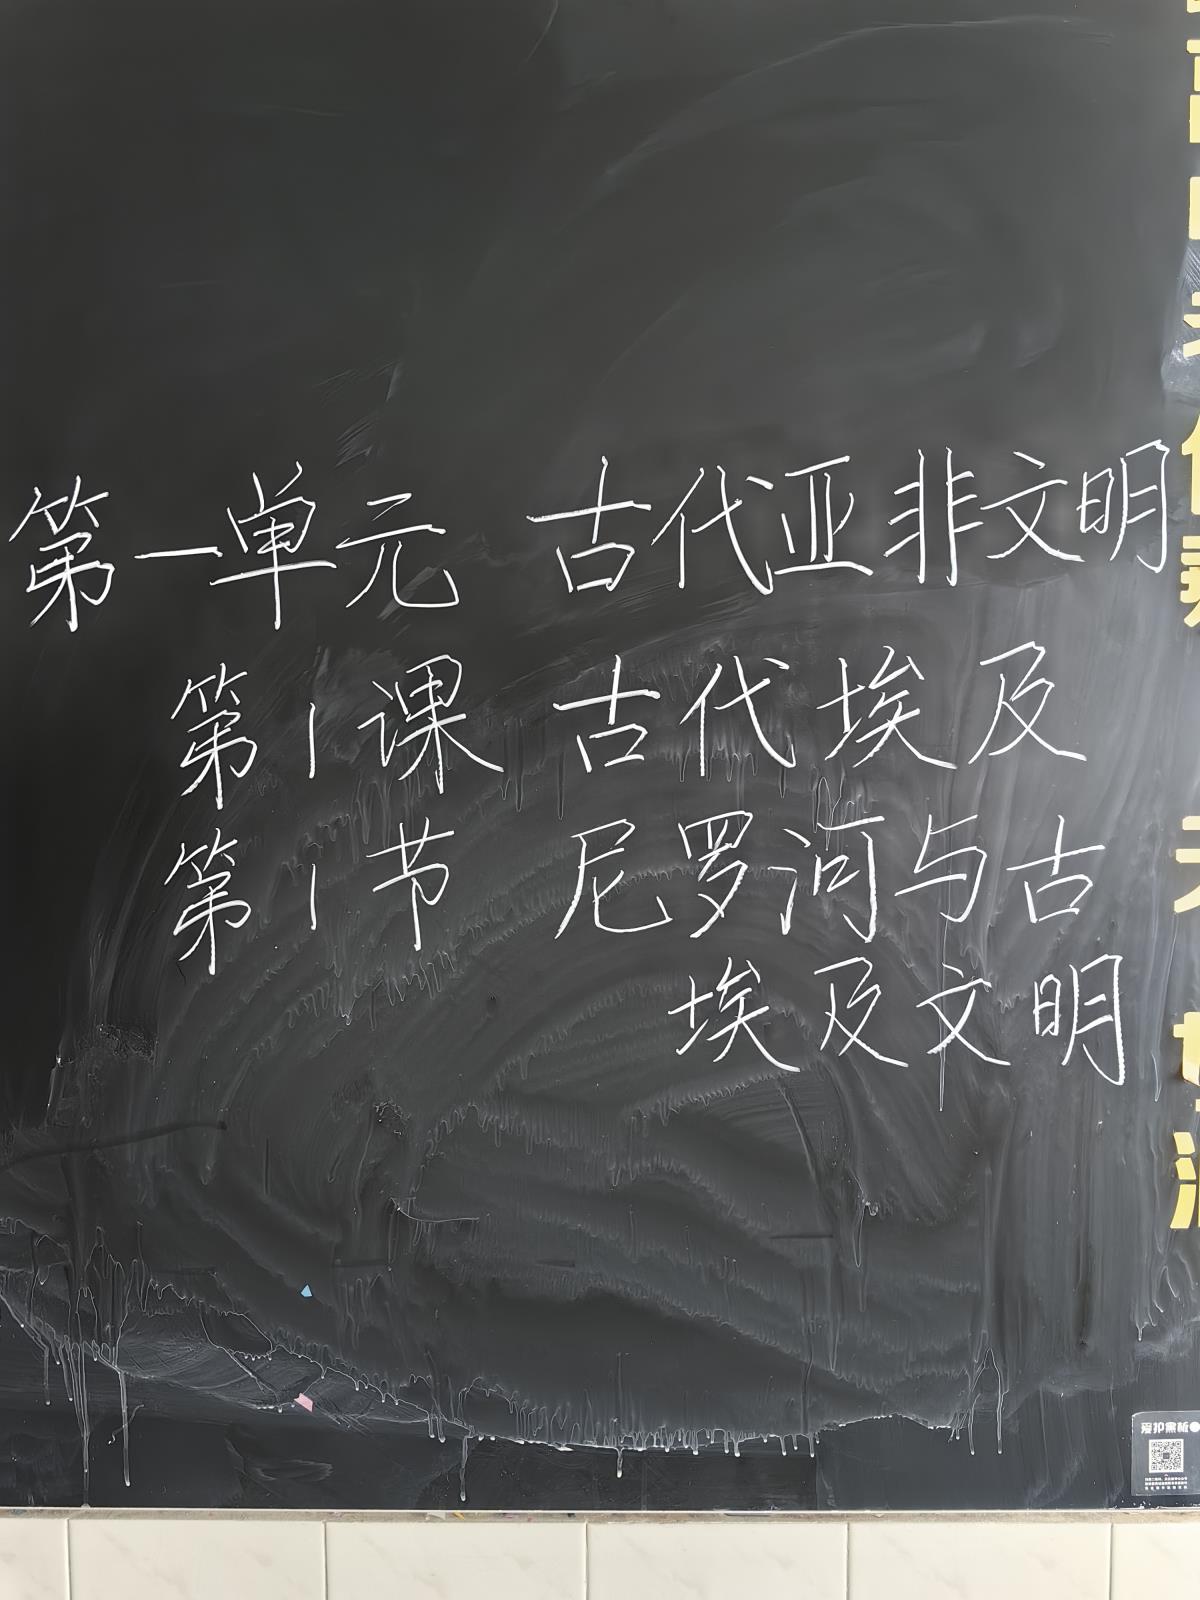 第一单元 古代亚非文明
第1课 古代埃及
第1节 尼罗河与古
埃及文明
爱护黑板